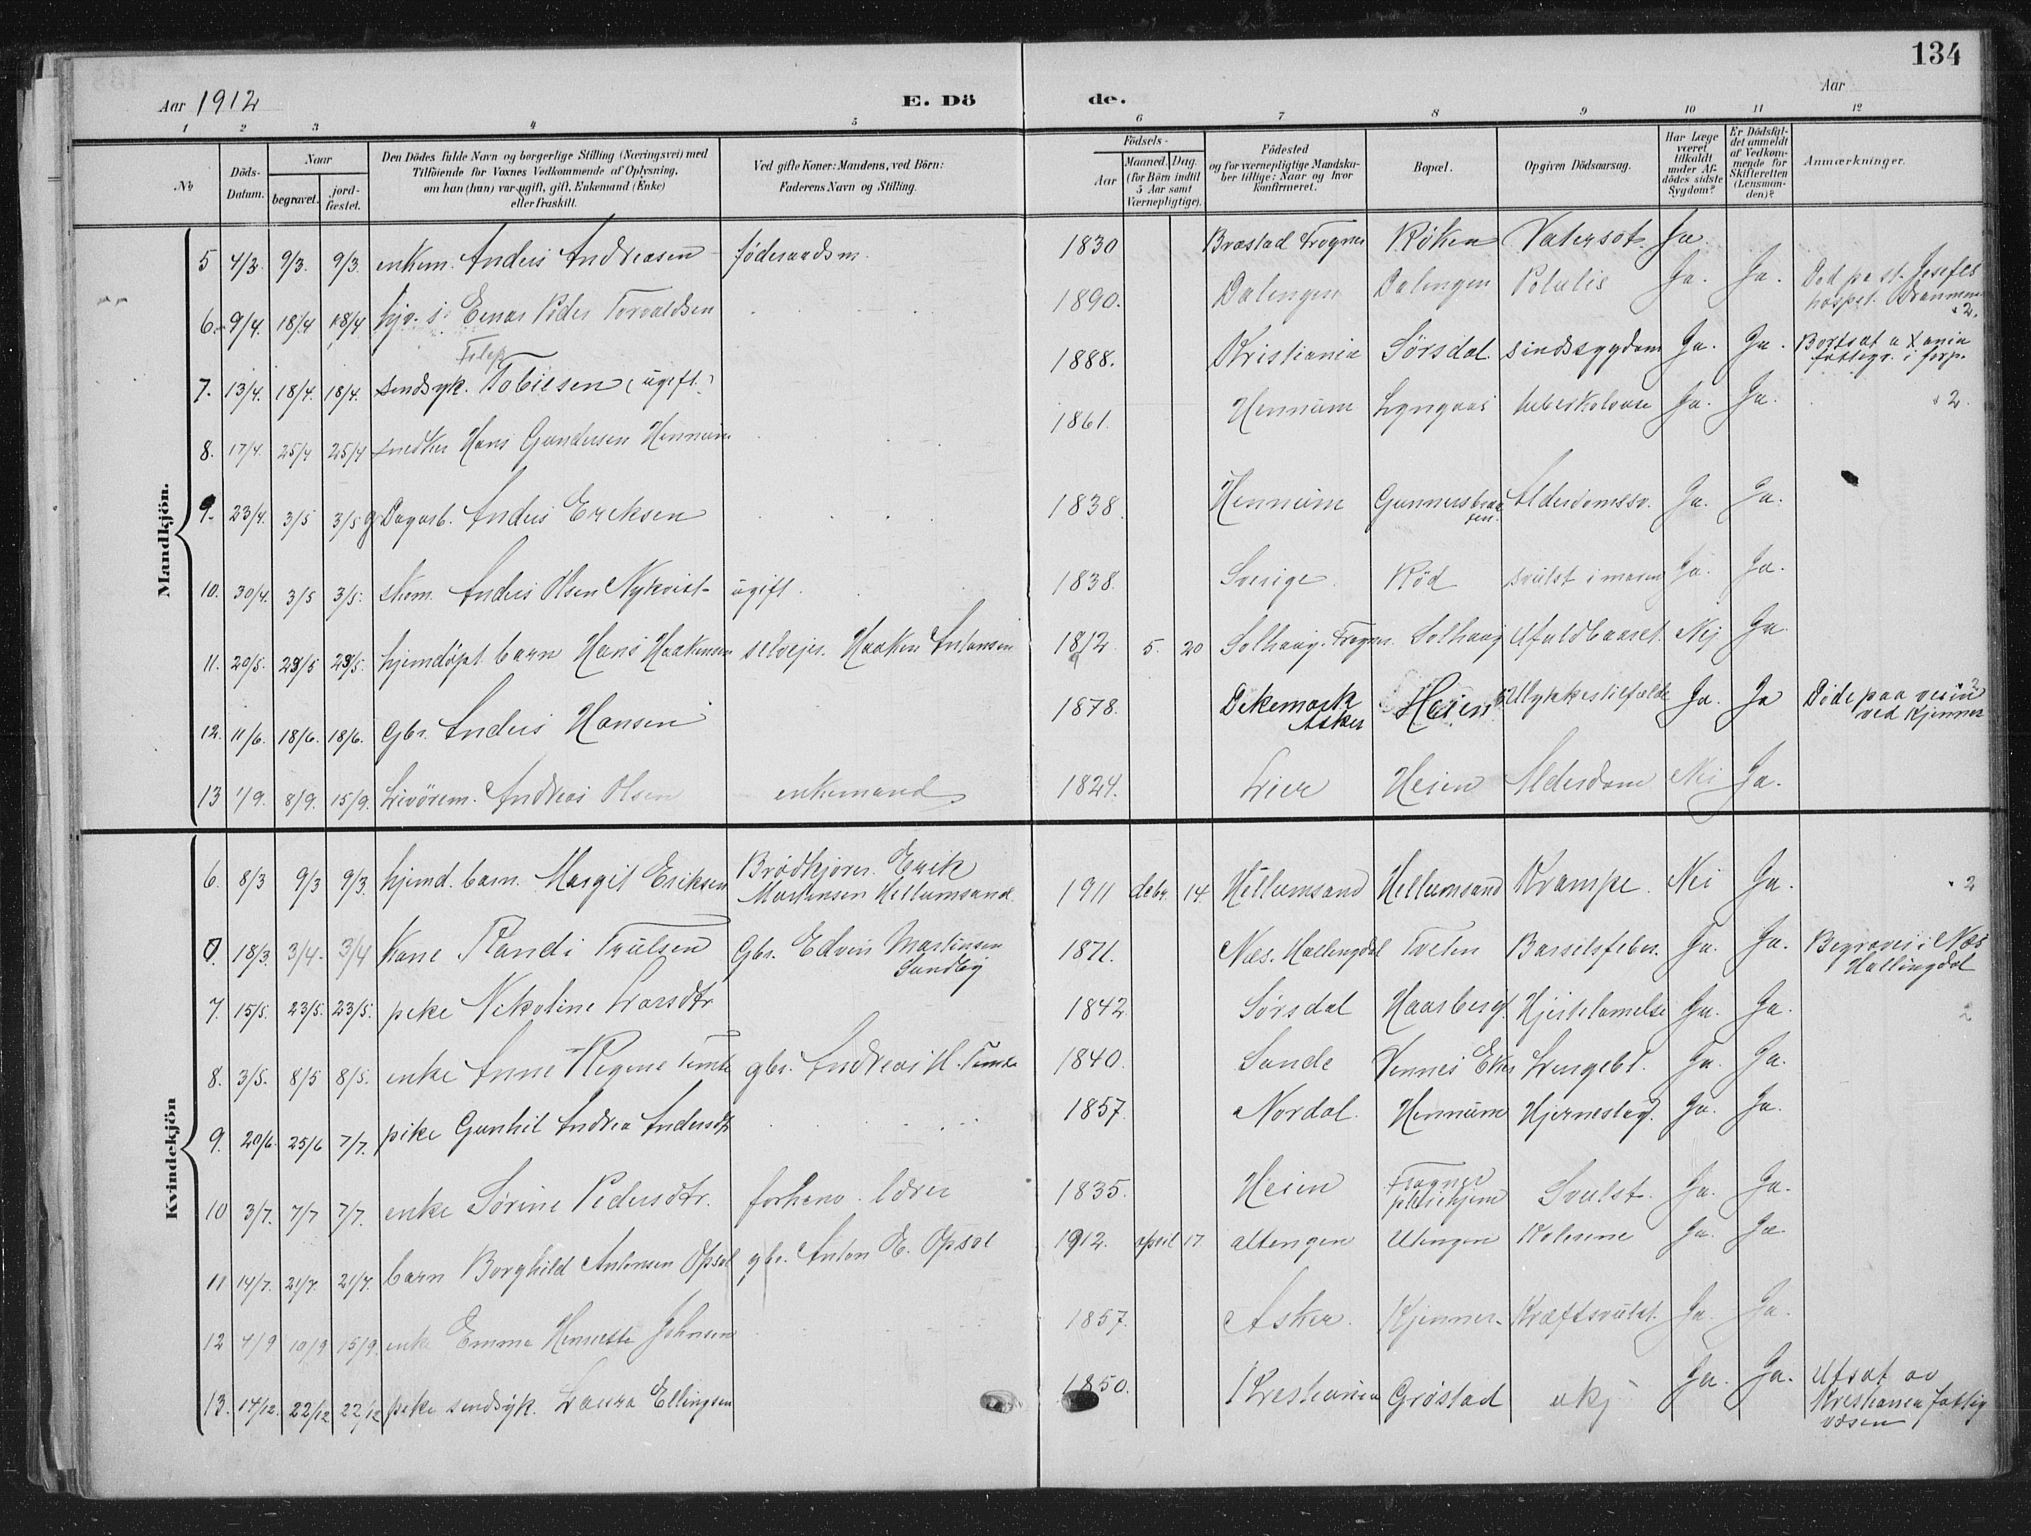 134
Aar 1912
E. Dö de.
Aar
1 2 3 4 5 6 7 8 9 10 11 12
No
Döds-Datum.
Naar
begravet.
jord-fæstet.
Den Dödes fulde Navn og borgerlige Stilling (Næringsvei) med
Tilföiende for Voxnes Vedkommende af Oplysning,
om han (hun) var ugift, gift, Enkemand (Enke)
eller fraskilt.
Ved gifte Koner: Mandens, ved Börn:
Faderens Navn og Stilling.
Födsels-
Aar
Maaned. Dag.
(for Börn indtil
5 Aar samt
Værnepligtige).
Födested
og for værnepligtige Mandska-
ber tillige: Naar og hvor
konfirmeret.
Bopæl.
Opgiven Dödsaarsag.
Har Læge
været
tilkaldt
under Af-
dödes sidste
Sygdom?
Er Dödsfal-
det anmeldt
af Vedkom-
mende for
Skifteretten
(Lensman-
den)?
Anmærkninger.
Mandkjön.
5 4/3. 9/3. 9/3. enkem. Anders Andreasen føderaadsm. 1830 Bræstad Frogner Røken Vatersot. Ja
6. 9/4. 18/4 18/4 Einar Peder Torvaldsen 1890. Dalengen Dalengen Ja. Ja. Død pa st. Josefs
hospt. Drammen
2.
7. 13/4. 18/4. 18/4. sindsyk. Tobiesen (ugift) 1888. Kristiania Sørsdal. sindssygdom Ja. Ja. Bortsat a X ania
fattigv. i forp.
8. 17/4. 25/4 25/4 snedker Hans Gundersen Hennum 1861. Hennum Lyngaas tuberkolose Ja. Ja. 2.
9. 23/4. 3/5 3/5 Dagarb. Anders Eriksen 1838. Hennum Alderdomssv. Ja. Ja.
10. 30/4. 3/5 3/5. Anders Olsen Nykvist ugift. 1838. Sverige. Rød svulst i maven Ja. Ja.
11. 20/5. 23/5 23/5. hjemdøpt barn Hans Haakensen selvejer. Haaken Antonsen 1912 5. 20 Solhaug. Frogner. Solhaug Ufuldbaaret. Nej Ja
12. 11/6. 18/6. 18/6. Gbr. Anders Hansen 1878. Dikemark
Asker Heien Ulykkestilfælde Ja. Ja Døde paa veien
ved Kjenner
2
13 1/9. 8/9. 15/9. Livørem. Andreas Olsen enkemand 1824. Lier Heien Alderdom Nei Ja.
Kvindekjön
6. 8/3 9/3 9/3. hjemd. barn. Margit Eriksen Brødkjører. Erik
Mortensen Hellumsand. 1911 debr. 14. Hellumsand Hellumsand Krampe. Nei Ja. 2
0. 18/3. 3/4. 3/4 Kone Randi Trulsen Gbr. Edvin Martinsen
Sundby 1871. Næs. Hallingdal Tveten Barselsfeber. Ja. Ja. Begraves i Næs
Hallingdal
7. 15/5. 23/5. 23/5. pike Nikoline Larsdtr 1842. Sørsdal Haasberg. Hjertelamelse Ja. Ja. 2
8. 3/5. 8/5 8/5. enke Anne Regine Timte gbr. Andreas H. Timte 1840. Sande Vennes Eker Lungebt. Ja. Ja.
9. 20/6. 25/6 7/7. pike Gunhil Andrea Andersdtr 1857. Nordal. Hennum Hjerneslag. Ja. Ja.
10 3/7. 7/7 7/7. enke Sørine Pedersdtr. forhenv. lærer 1835. Heien Frogner
pleiehjem Svulst. Ja. Ja.
11 14/7. 21/7. 21/7. barn Borghild Antonsen Opsal gbr. Anton E. Opsal 1912. april 17. Utengen Kolerine Ja. Ja
12 4/9 10/9 15/9. enke Emma Henriette Johnsen 1857. Asker. Kjenner. Kræftsvulst. Ja. Ja.
13. 17/12. 22/12 22/12 pike sindsyk. Laura Ellingsen 1850. Kristiania Grøstad ukj Ja. Ja. Utsat av
Kristiania fattig
væsen